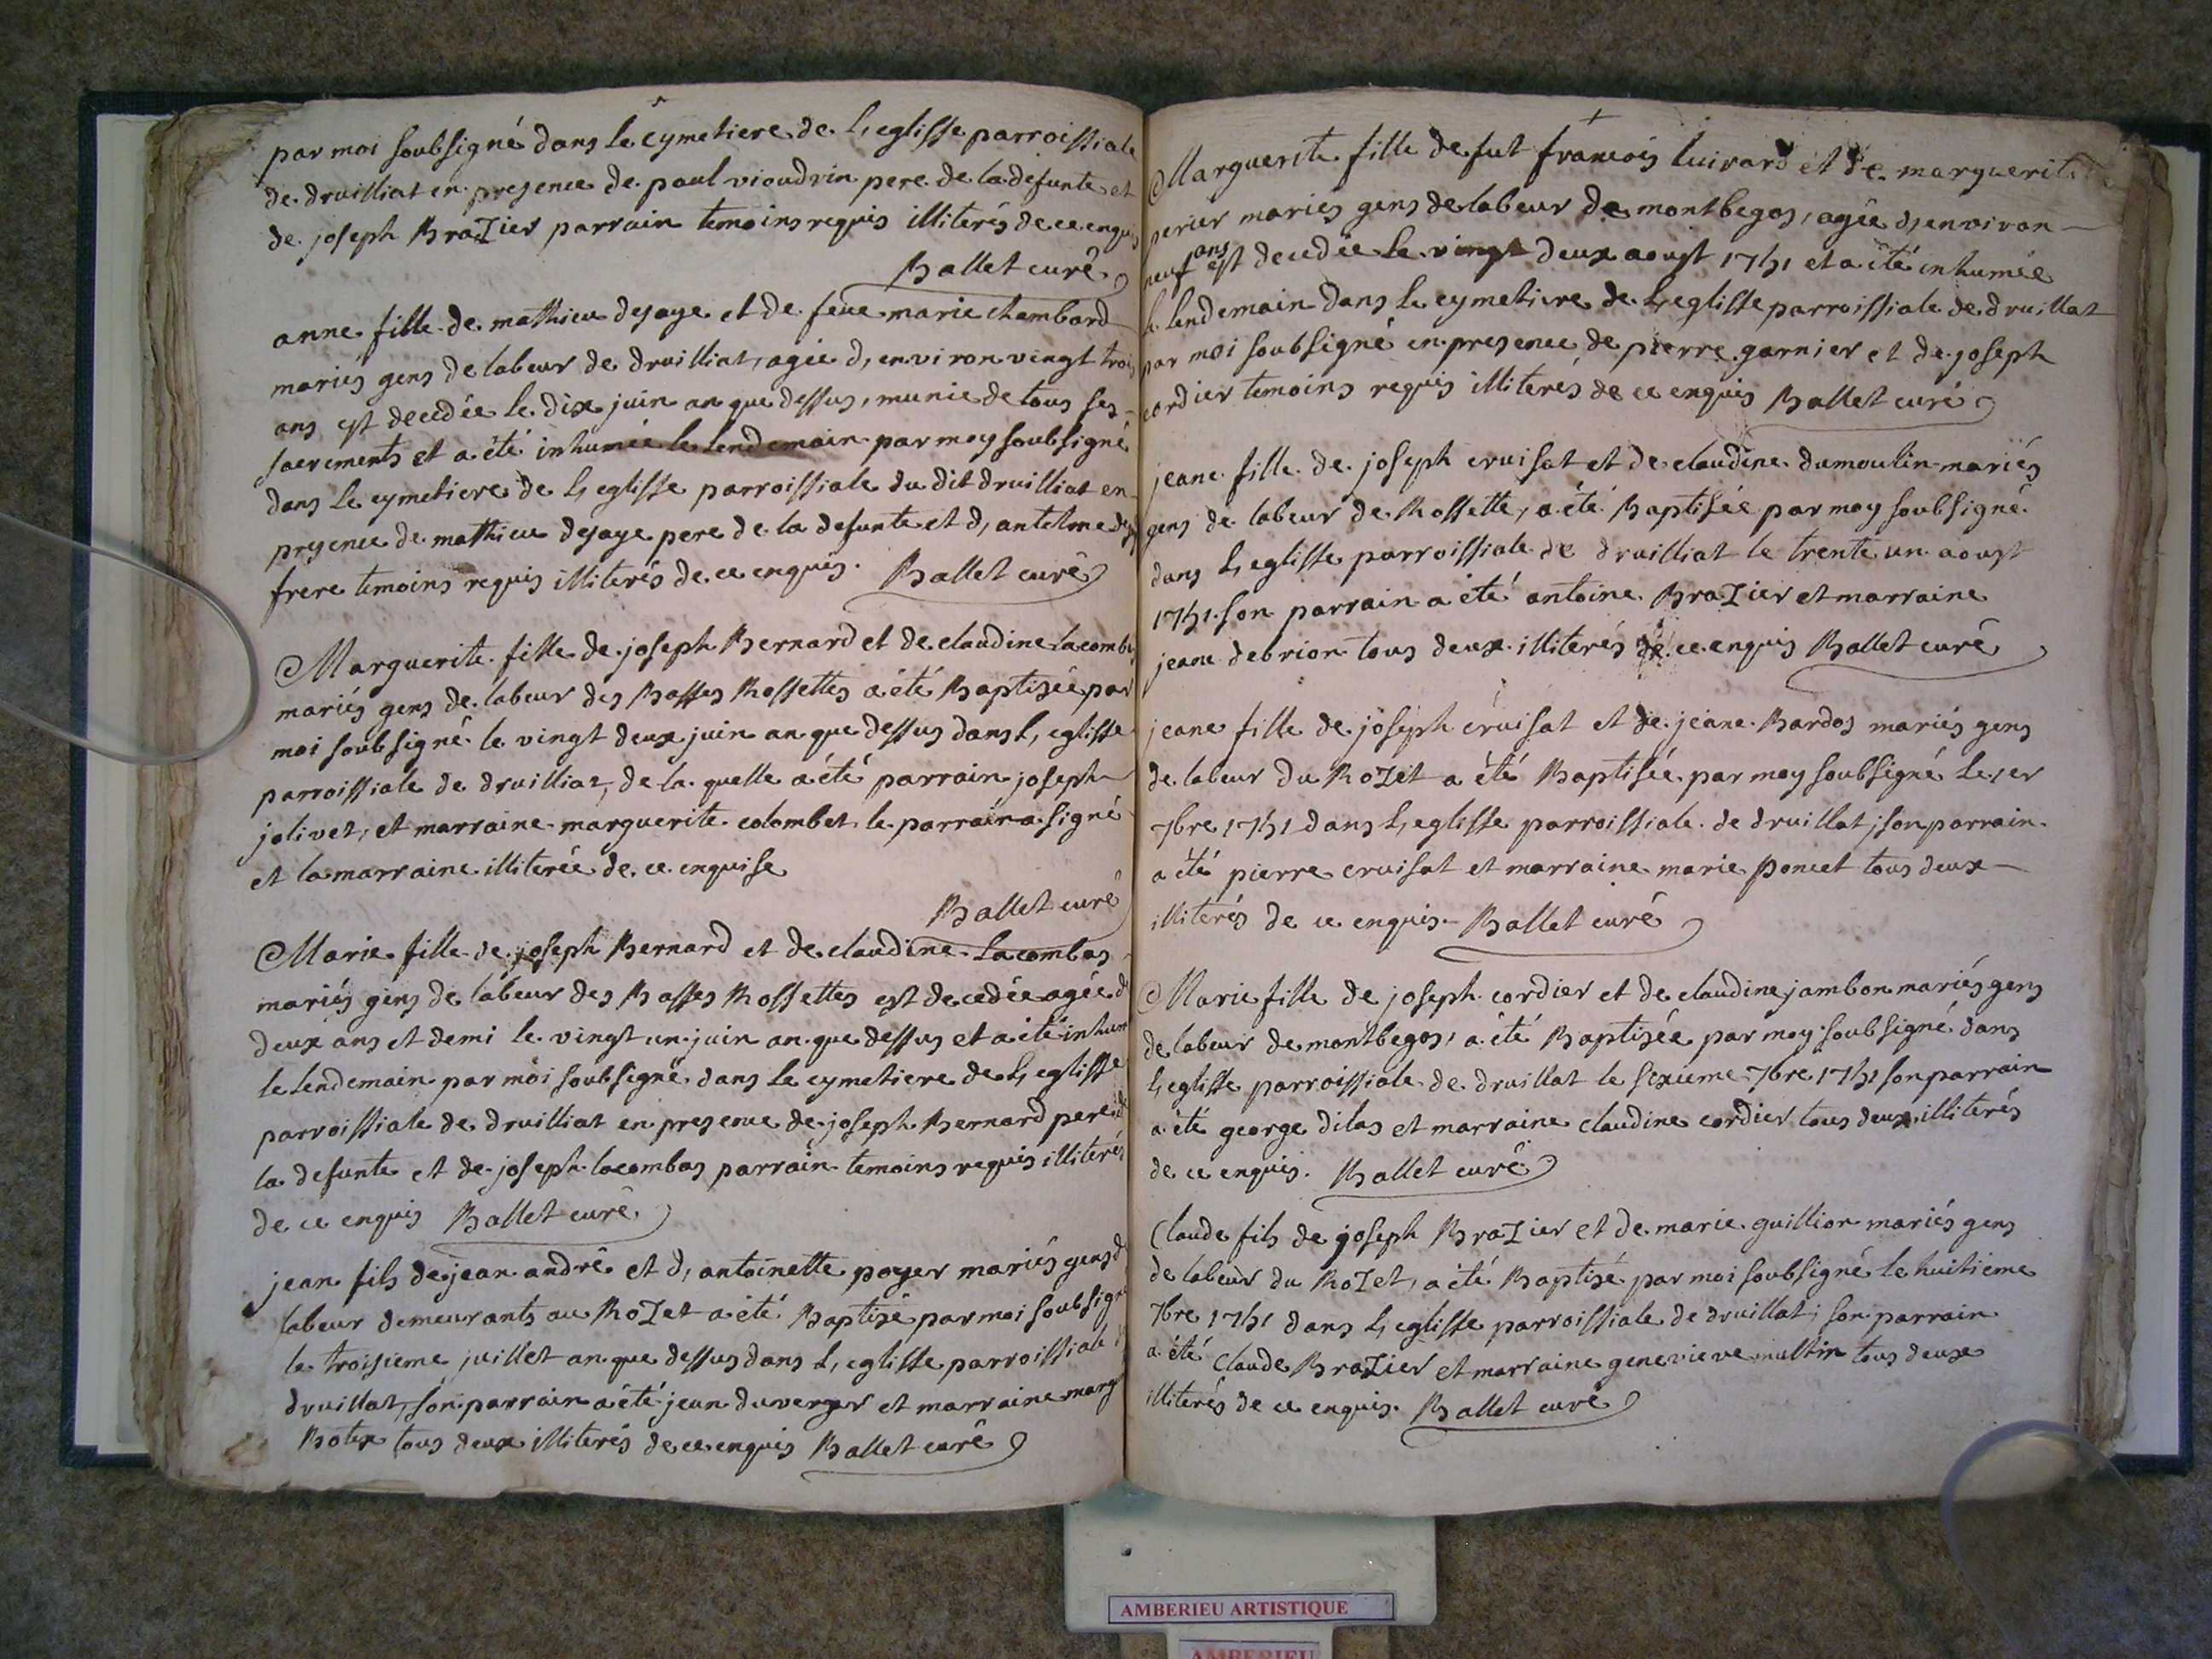 par moi soubsigné dans le cymetiere de L,eglisse parroissiale
de druilliat en presence de paul vioudrin pere de la defunte et
de joseph BraZier parrain temoins requis illiterés de ce enquis
Ballet curé
anne fille de mathieu desaye et de feüe marie chambard
mariés gens de labeur de druilliat, agée d,environ vingt trois
ans est decedée le dix juin an que dessus, munie de tous ses
sacrements et a été inhumée le lendemain par moy soubsigné
dans le cymetiere de L,eglisse parroissiale du dit druilliat en
presence de mathieu desaye pere de la defunte et d,antelme
frere temoins requis illiterés de ce enquis. Ballet curé
Marguerite fille de joseph Bernard et de claudine Lacombas
mariés gens de labeur des Basses Rossettes a été Baptisée par
moi soubsigné le vingt deux juin an que dessus dans L,eglisse
parroissiale de druilliat, de la quelle a été parrain joseph
jolivet, et marraine marguerite colombet le parrain a signé
et la marraine illiterée de ce enquise
Ballet curé
Marie fille de joseph Bernard et de claudine Lacombas
mariés gens de labeur des Basses Rossettes est decedée agée d
deux ans et demi le vingt un juin an que dessus et a été inhum
le lendemain par moi soubsigné dans le cymetiere de L,eglisse
parroissiale de druilliat en presence de joseph Bernard pere de
la defunte et de joseph lacombas parrain temoins requis illiterés
de ce enquis Ballet curé
jean fils de jean andré et d,antoinette payer mariés gens d
labeur demeurants au RoZet a été Baptisé par moi soubsign
le troisieme juillet an que dessus dans L,eglisse parroissiale
druillat, son parrain a été jean duverger et marraine marg
Botex tous deux illiterés de ce enquis Ballet curé
Marguerite fille de fut francois Luivard et de marguerite
perier mariés gens de labeur de montbegos, agée d,environ
neuf ans est decedée le vingt deux aoust 1751 et a été inhumée
le lendemain dans le cymetiere de L,eglisse parroissiale de druillat
par moi soubsigné en presence de pierre garnier et de joseph
cordier temoins requis illiterés de ce enquis Ballet curé
jeane fille de joseph cruisat et de claudine dumoulin mariés
gens de labeur de Rossette, a été Baptisée par moy soubsigné
dans L,eglisse parroissiale de druilliat le trente un aoust
1751. son parrain a été antoine BraZier et marraine
jeane debrion tous deux illiterés de ce enquis Ballet curé
jeane fille de joseph cruisat et de jeane Bardos mariés gens
de labeur du RoZet a été Baptisée par moy soubsigné Le 1er
7bre 1751 dans L,eglisse parroissiale de druillat, son parrain
a été pierre cruisat et marraine marie poncet tous deux
illiterés de ce enquis. Ballet curé
Marie fille de joseph cordier et de claudine jambon mariés gens
de labeur de montbegos, a été Baptisée par moy soubsigné dans
L,eglisse parroissiale de druillat le sixieme 7bre 1751 son parrain
a été george dilas et marraine claudine cordier tous deux illiterés
de ce enquis. Ballet curé
Claude fils de joseph BraZier et de marie guillion mariés gens
de labeur du RoZet, a été Baptisé par moi soubsigné le huitieme
7bre 1751 dans L,eglisse parroissiale de druillat; son parrain
a été Claude BraZier et marraine genevieve multin tous deux
illiterés de ce enquis. Ballet curé
AMBERIEU ARTISTIQUE
AMBERIEU